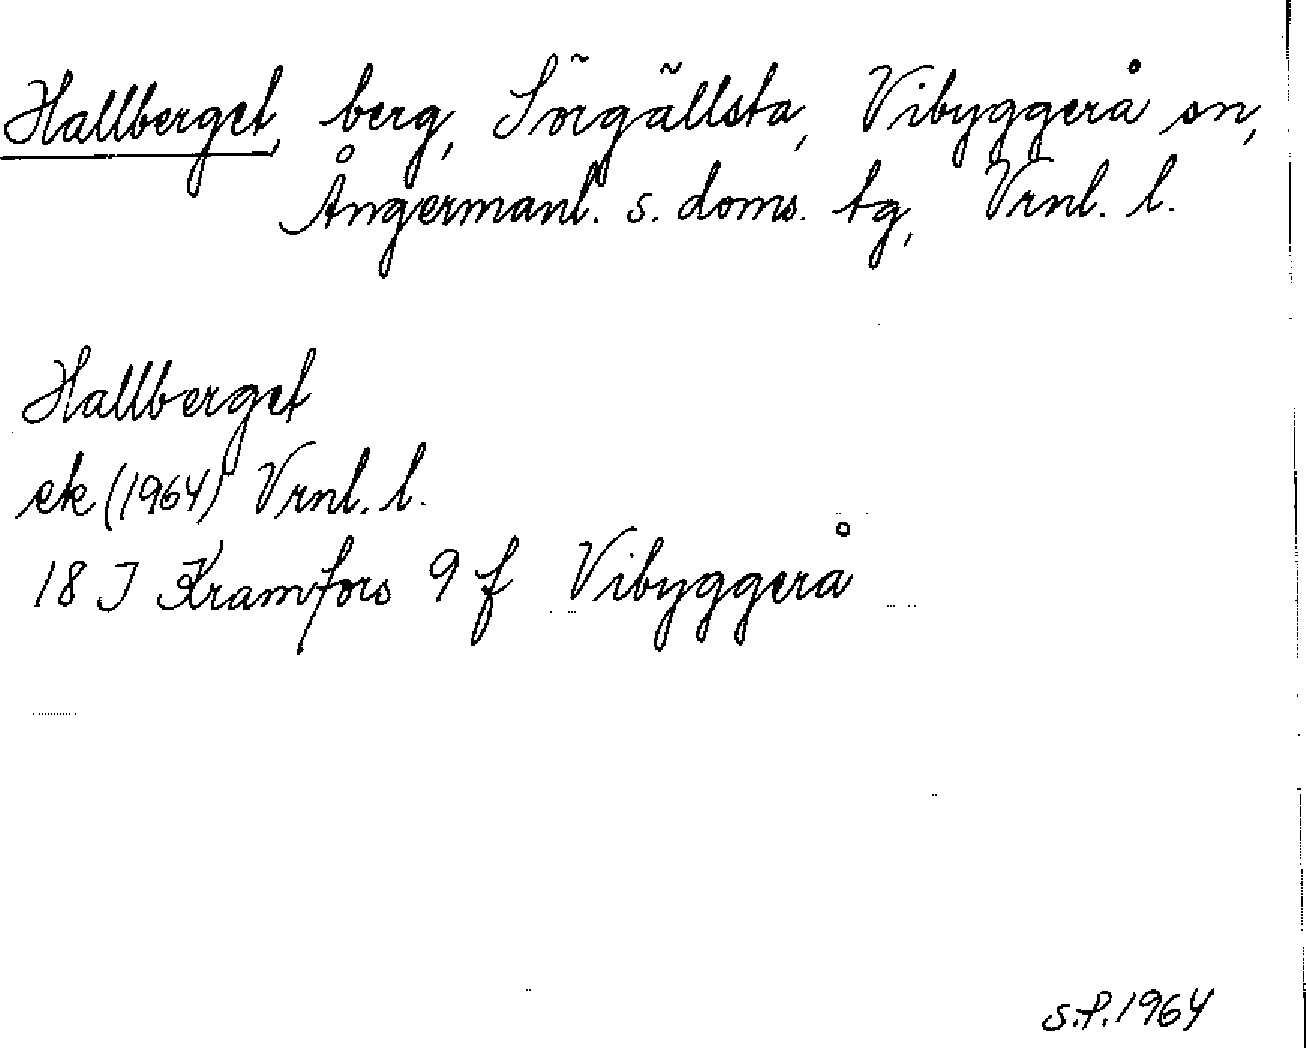 Hallberget, berg, Sörgällsta, Vibyggerå sn,
Ångermanl. s. doms. tg, Vrnl. l.
Hallberget
ek (1964) Vrnl. l.
18 J Kramfors 9 f Vibyggerå
S.P. 1964